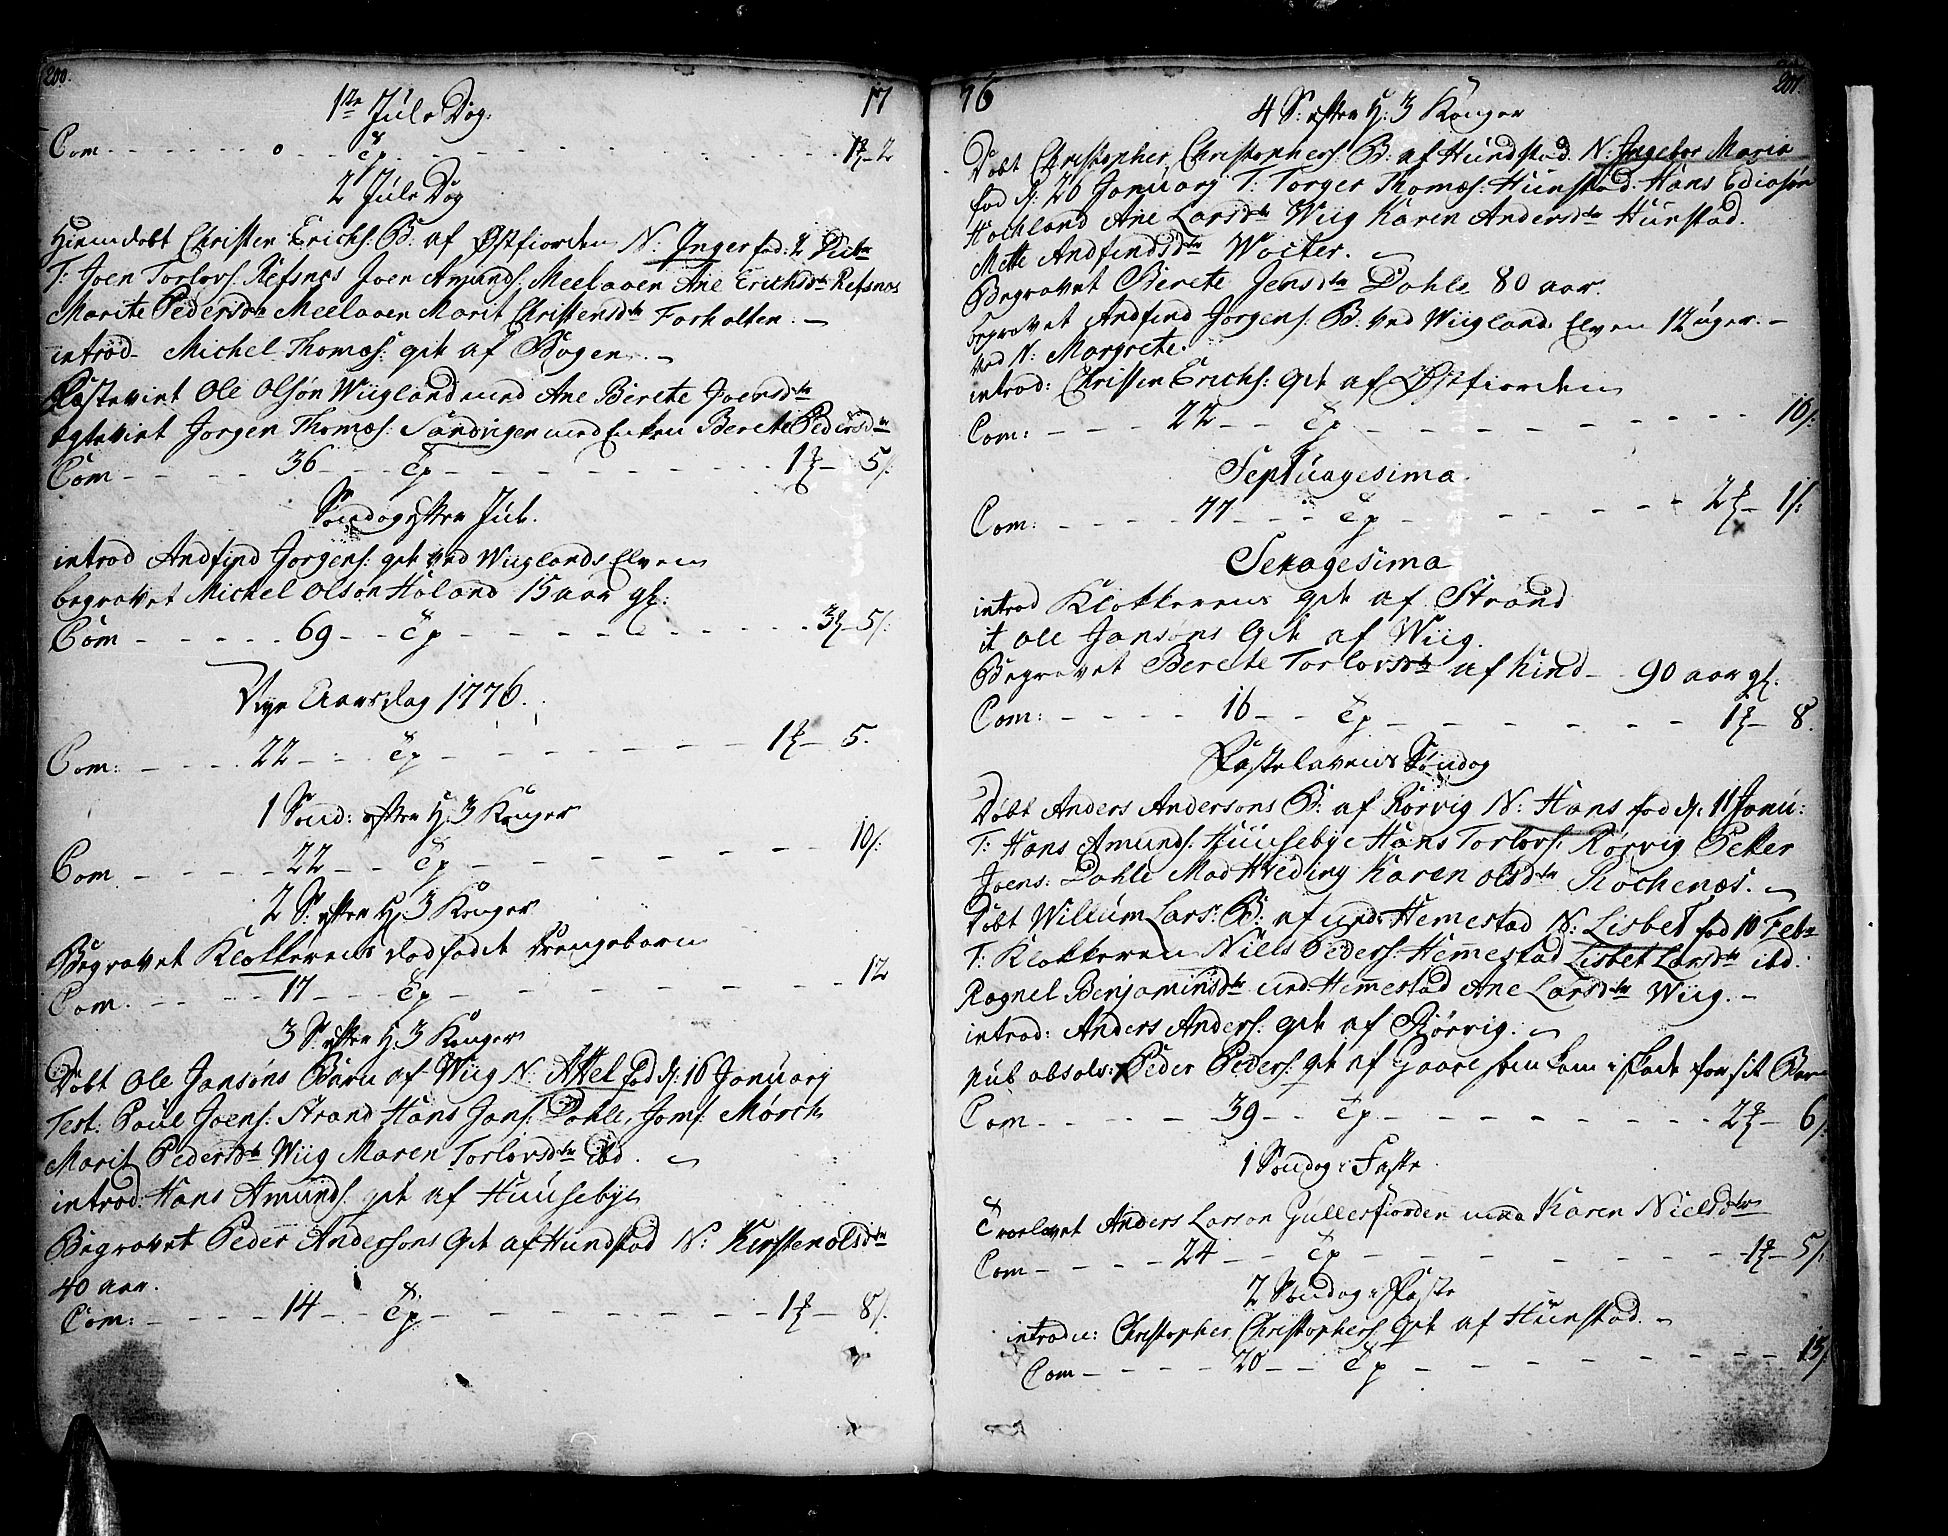 200.
17
1te Jule Dag.
Com - - - - - - o - - Cp - - - - - - 1 - 2
2 Jule Dag
Hiemdøbt Christen Erichs: B: af Østfiorden N: Inger fød: 2 Decbr
T: Joen Torlovs: Refsnæs Joen Amunds: Meelaaen Ane Erichsdtr Refsnæs
Marite Pedersdtr Meelaaen Marit Christensdtr Forholten. -
introd- Michel Thomæs: qvt af Bogen. -
Fæstevirt Ole Olsøn Wiigland med Ane Berete Joensdtr
egtevirt Jørgen Thomæs: Sandvigen med Enken Berete Pedersdtr
Com - - - - 36 - - Cp - - - - - - 1 - 5/.
Søndag efter Jul.
introd Andfind Jørgens: qvt ved Wiiglands Elven
begravet Michel Olsøn Høland 15 aar gl:
Com - - - - - 69 - - Cp - - - - - - 3 - 5/:
Nye Aarsdag 1776.
Com: - - - - 22 - - Cp - - - - - - 1 - 5.
1 Sønd: efter H: 3 Konger
Com - - - - - 22 - - Cp - - - - - - 10/:
2 S: efter H: 3 Konger
Begravet Klokkerens dødfødt drengebarn
Com. - - - - 17 - - - Cp - - - - - - 12
3 S: efter H: 3 Konger
Døbt Ole Jansøns Barn af Wiig N: Axel fød d: 16 Januarj
Test: Paul Joens: Strand Hans Jans: Dahle, Jomf: Mørch
Marit Pedersdtr Wiig Maren Torlovsdtr ibd. -
introd: Hans Amunds: qvt af Huusebye
Begravet Peder Andersøns Qvt af Hundstad N: Kirsten Olsdtr
40 aar.
Com: - - - - 14 - - Cp - - - - - - 1 - 8/.
76
201.
4 S: efter H: 3 Konger
Døbt Christopher Christophers: B: af Hundstad N: Ingebor Maria
fød d: 26 Januarj T: Torger Thomæs: Hunstad Hans Ediasøn
Hochland Ane Larsdtr Wiig Karen Andersdtr Hunstad.
Mette Andfindsdtr Wocter. -
Begravet Berete Jensdtr Dahle 80 aar.
begravet Andfind Jørgens: B. ved Wiiglands Elven 12 uger. -
ved N: Margrete.
introd: Christen Erichs: Qvt af Østfiorden
Com: - - - - 22 - - Cp - - - - - - 16/:
Septuagesima.
Com: - - - - 77 - - - Cp - - - - - - 2 - 1/:
Sexagesima
introd Klokkerens Qvt af Strand
it Ole Jansøns Qvt af Wiig.
Begravet Berete Torlovsdtr af Kind - 90 aar gl.
Com: - - - - 16 - - Cp - - - - - - 1 - 8.
Fastelavens Søndag
Døbt Anders Andersøns B: af Rørvig N: Hans fød d: 11 Janu:
T: Hans Amunds: Huusebye Hans Torlovs: Rørvig Petter
Joens: Dahle Mad Hveding Karen Olsdtr Kochenæs. -
Døbt Willum Lars: B: af und: Hemestad N: Lisbet fød 10 Febr
T: Klokkeren Niels Peders: Hemestad Lisbet Larsdtr ibd:
Ragnel Benjaminsdtr und: Hemestad Ane Larsdtr Wiig. -
introd: Anders Anders: qvt af Rørvig. -
Pub absols: Peder Peders: qvt af Gaare som kom i skade for sit Barn
Com - - - - - 39 - - Cp - - - - - - 2 - 6/:
1 Søndag i Faste.
Trolovet Anders Larsøn Gullesfiorden med Karen Nielsdtr
Com - - - - 24 - - Cp - - - - - - 1 - 5/:
2 Søndag i Faste
introdu: Christopher Christophers: Qvt af Hunstad. -
Com - - - - 20 - - Cp - - - - - - 15/: